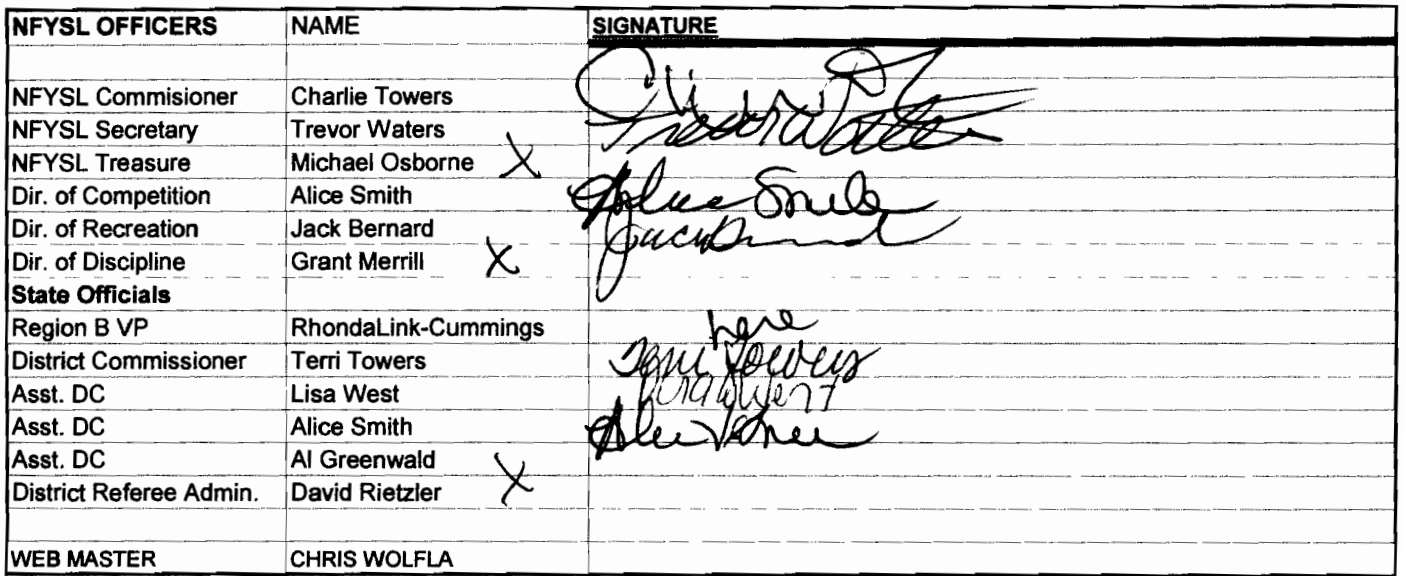 NFYSL OFFICERS NAME SIGNATURE
NFYSL Commisioner Charlie Towers
NFYSL Secretary Trevor Waters Trevor Waters
NFYSL Treasure Michael Osborne X
Dir. of Competition Alice Smith Alice Smith
Dir. of Recreation Jack Bernard Jack Bernard
Dir. of Discipline Grant Merrill X
State Officials
Region B VP RhondaLink-Cummings here
District Commissioner Terri Towers Terri Towers
Asst. DC Lisa West Lisa West
Asst. DC Alice Smith
Asst. DC Al Greenwald
District Referee Admin. David Rietzler X
WEB MASTER CHRIS WOLFLA